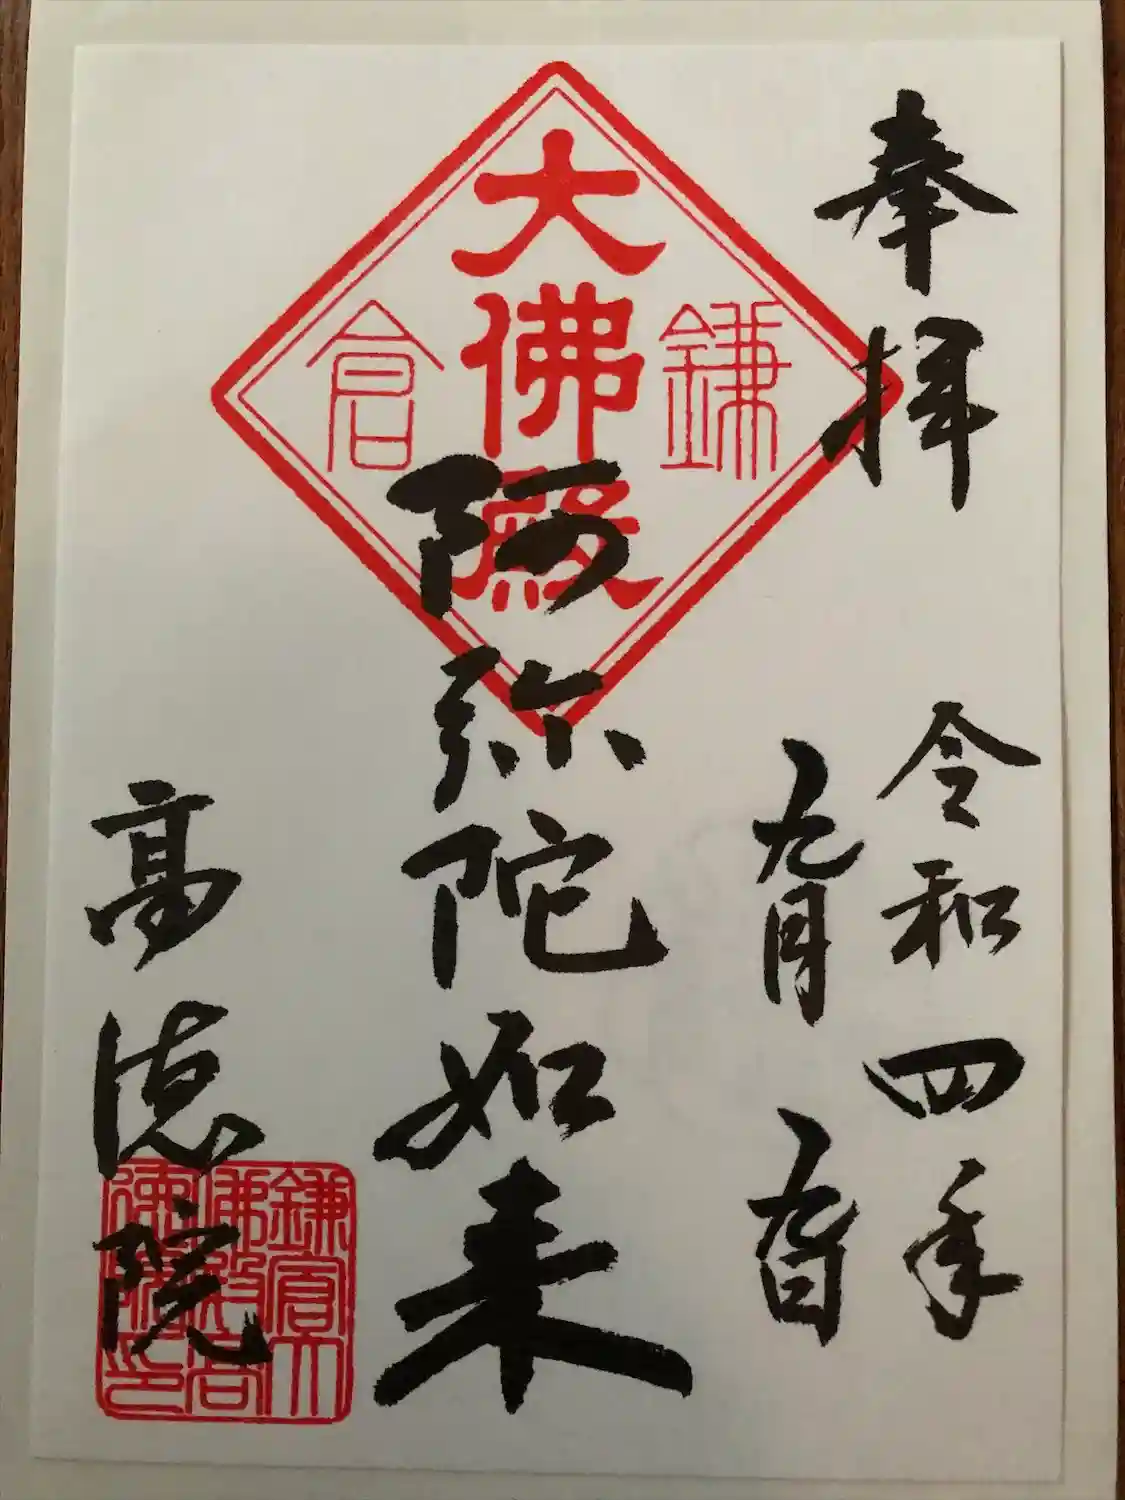 奉拝
令和四年
九月九日
大佛殿
鎌倉
阿弥陀如来
高徳院
鎌倉大
佛殿高
徳院印